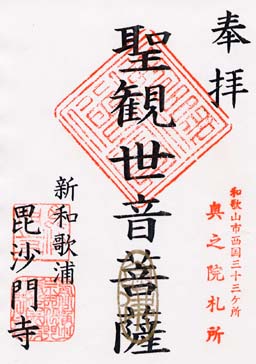 奉拝
和歌山市西国三十三ケ所
奥之院札所
聖観世音菩薩
新和歌浦
毘沙門寺